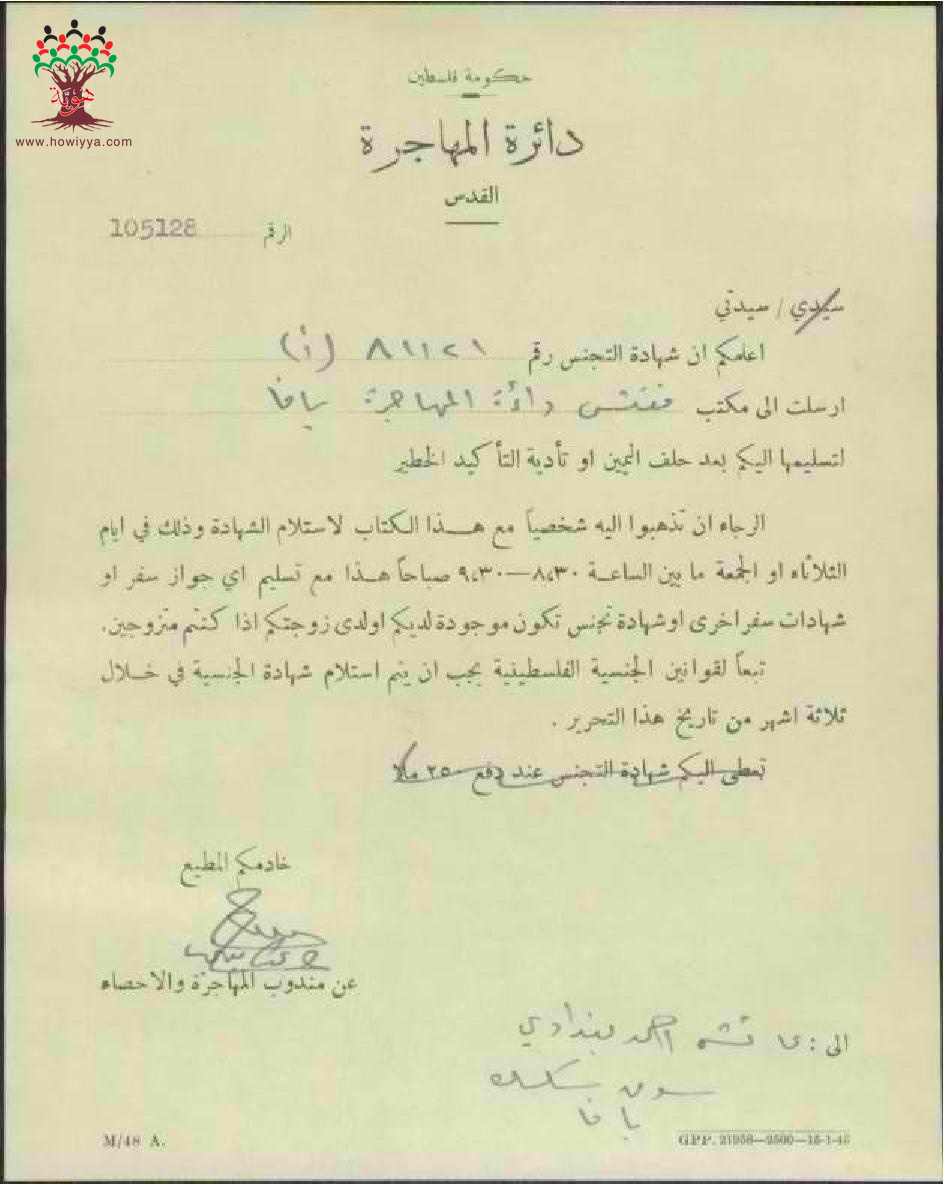 هوية
www.howiyya.com
حكومة فلسطين
دائرة المهاجرة
القدس
الرقم 105128
سيدي / سيدتي
اعلمكم ان شهادة التجنس رقم ٨١١٢١ (أ)
ارسلت الى مكتب مفتش دائرة المهاجرة يافا
لتسليمها اليكم بعد حلف اليمين او تأدية التأكيد الخطير
الرجاء ان تذهبوا اليه شخصياً مع هذا الكتاب لاستلام الشهادة وذلك في ايام
الثلاثاء او الجمعة ما بين الساعة ٨،٣٠—٩،٣٠ صباحاً هذا مع تسليم اي جواز سفر او
شهادات سفر اخرى او شهادة تجنس تكون موجودة لديكم او لدى زوجتكم اذا كنتم متزوجين.
تبعاً لقوانين الجنسية الفلسطينية يجب ان يتم استلام شهادة الجنسية في خلال
ثلاثة اشهر من تاريخ هذا التحرير .
تعطى اليكم شهادة التجنس عند دفع ٢٥ ملا
خادمكم المطيع
عن مندوب المهاجرة والاحصاء
الى : عائشه احمد بغدادي
سوق
يافا
M/48 A.
GPP. 21958—2500—15-1-46